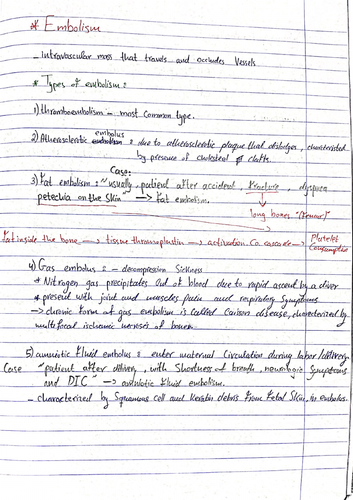 * Embolism
- Intravascular mass that travels and occludes Vessels
* Types of embolism:
1) thromboembolism - most common type.
2) Atherosclerotic embolus : due to atherosclerotic plaque that dislodges, characterized
by presence of cholesterol clefts.
Case:
3) Fat embolism: "usually, patient after accident, fracture, dyspnea
petechia on the skin" → Fat embolism.
long bones "Femur"
Fat inside the bone → tissue thromoplastin → activation Co. cascade → Platelet
Consumption
4) Gas embolus : - decompression Sickness
* Nitrogen gas precipitates out of blood due to rapid ascent by a diver
* present with joint and muscles pain and respiratory Symptoms
→ chronic form of gas embolism is called Caison disease, characterized by
multifocal ischemic necrosis of bones.
5) amniotic Fluid embolus : enter maternal Circulation during labor/delivery
Case "patient after delivery, with Shortness of breath, neurologic Symptoms
and DIC" → amniotic fluid embolism.
- characterized by Squamous cell and Keratin debris From Fetal Skin, in embolus.